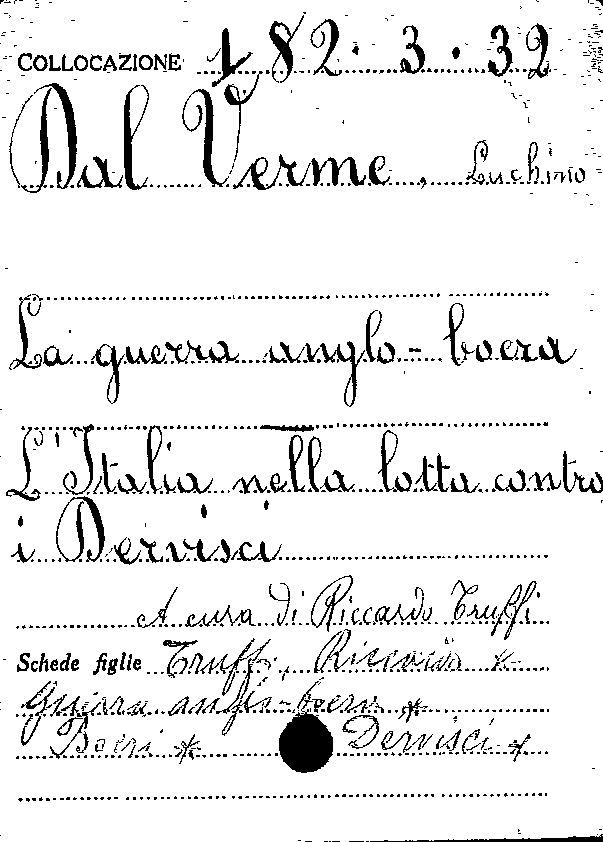 COLLOCAZIONE 182.3.32
Dal Verme, Luchino
La guerra anglo-boera
L'Italia nella lotta contro
i Dervisci
A cura di Riccardo Truffi
Schede figlie Truffi, Riccardo *
Guerra anglo-boera *
Boeri * Dervisci *